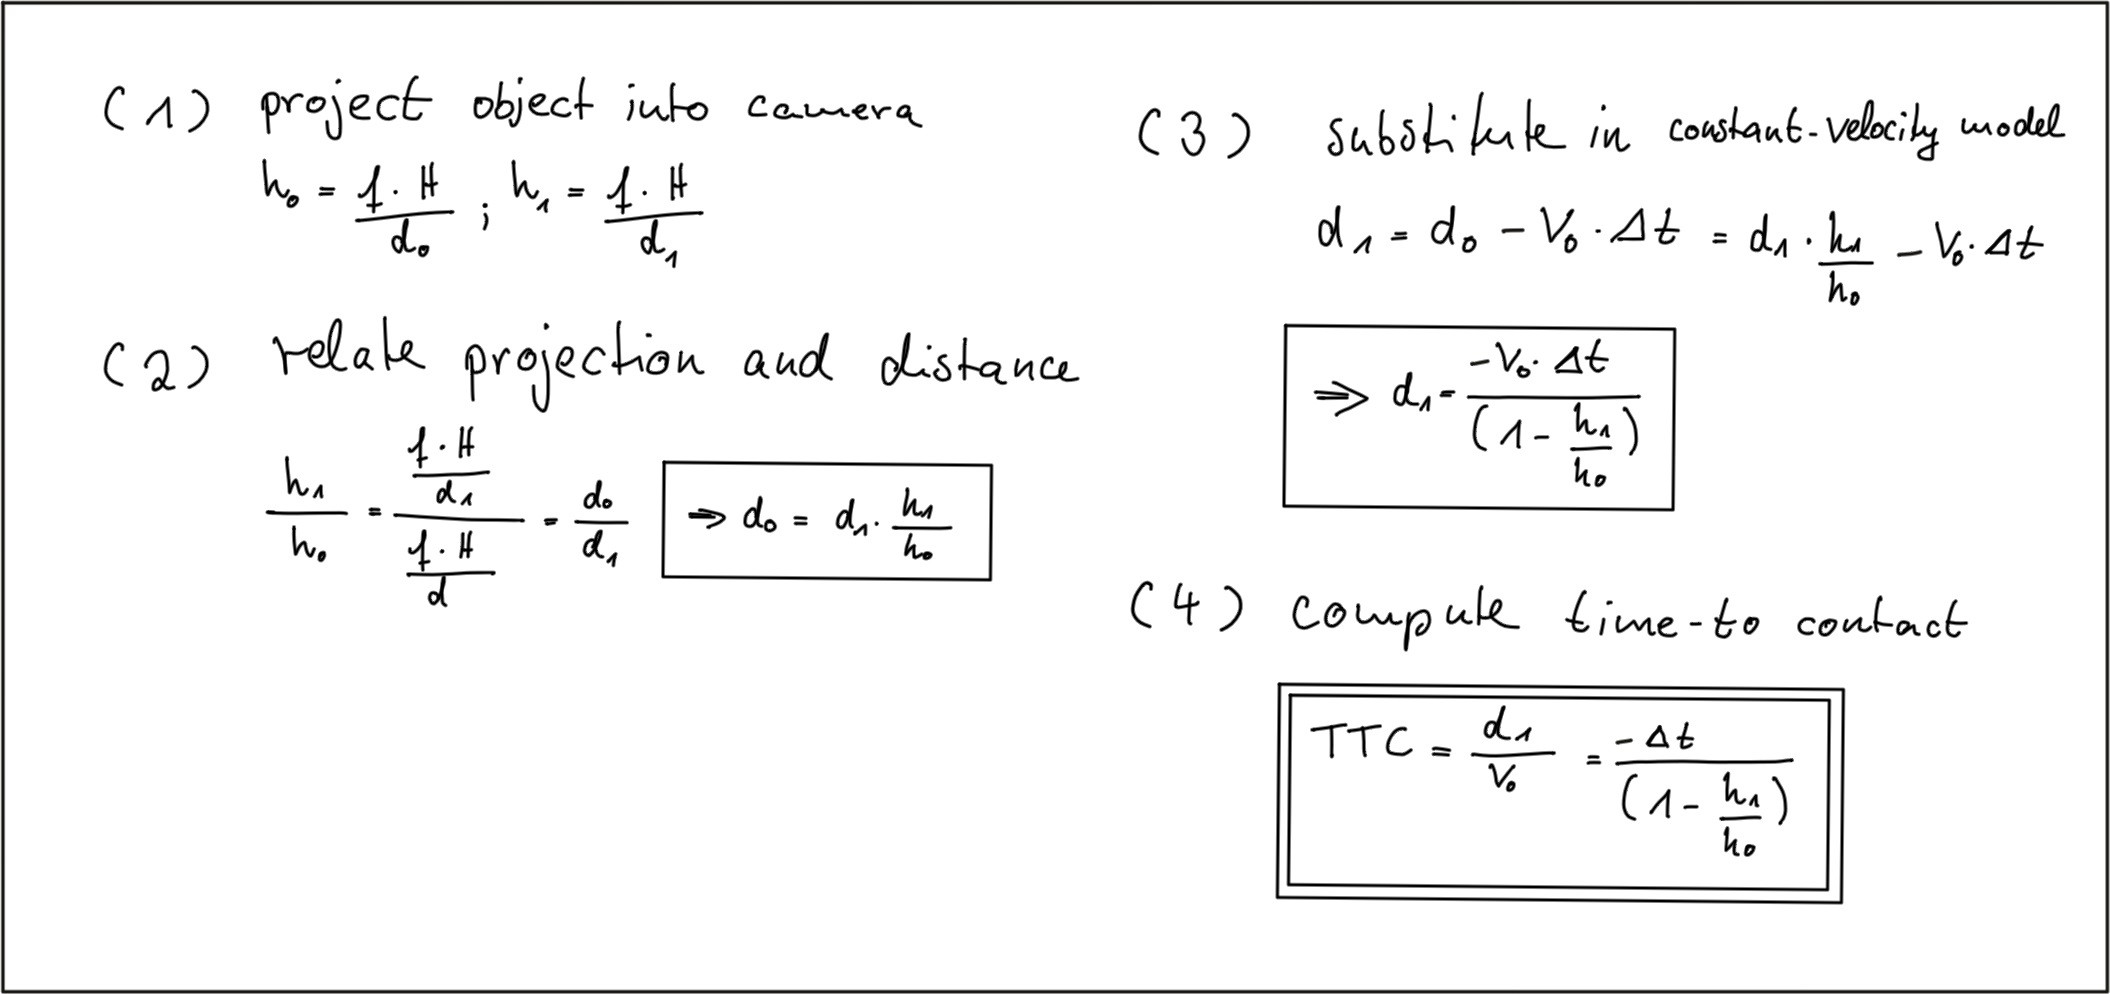 (1) project object into camera
h₀ = f · H / d₀ ; h₁ = f · H / d₁
(2) relate projection and distance
h₁ / h₀ = (f · H / d₁) / (f · H / d) = d₀ / d₁ ⇒ d₀ = d₁ · h₁ / h₀
(3) substitute in constant-velocity model
d₁ = d₀ - V₀ · Δt = d₁ · h₁ / h₀ - V₀ · Δt
⇒ d₁ = -V₀ · Δt / (1 - h₁ / h₀)
(4) compute time-to contact
TTC = d₁ / V₀ = -Δt / (1 - h₁ / h₀)